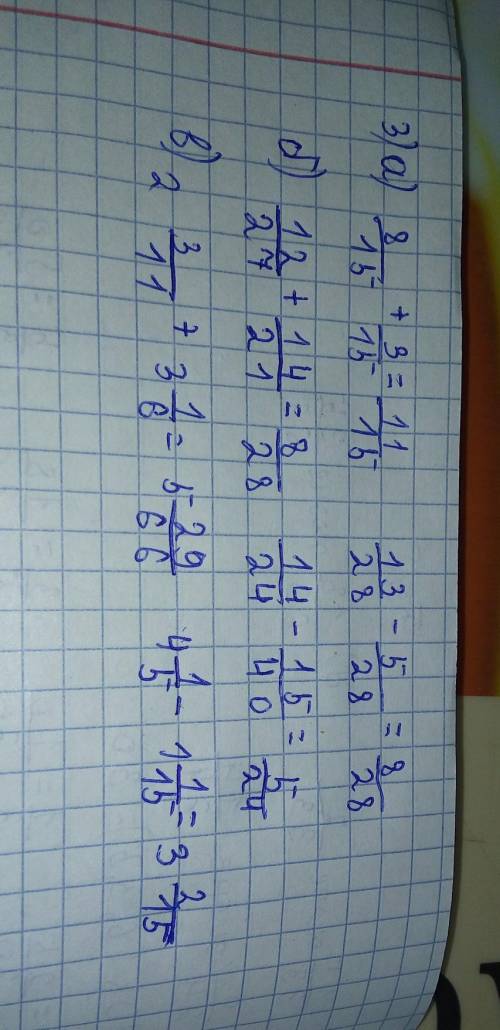 3) а) 8/15 + 3/15 = 11/15 13/28 - 5/28 = 8/28
б) 12/27 + 14/21 = 8/28 14/24 - 15/40 = 5/24
в) 2 3/11 + 3 1/6 = 5 29/66 4 1/5 - 1 1/15 = 3 2/15